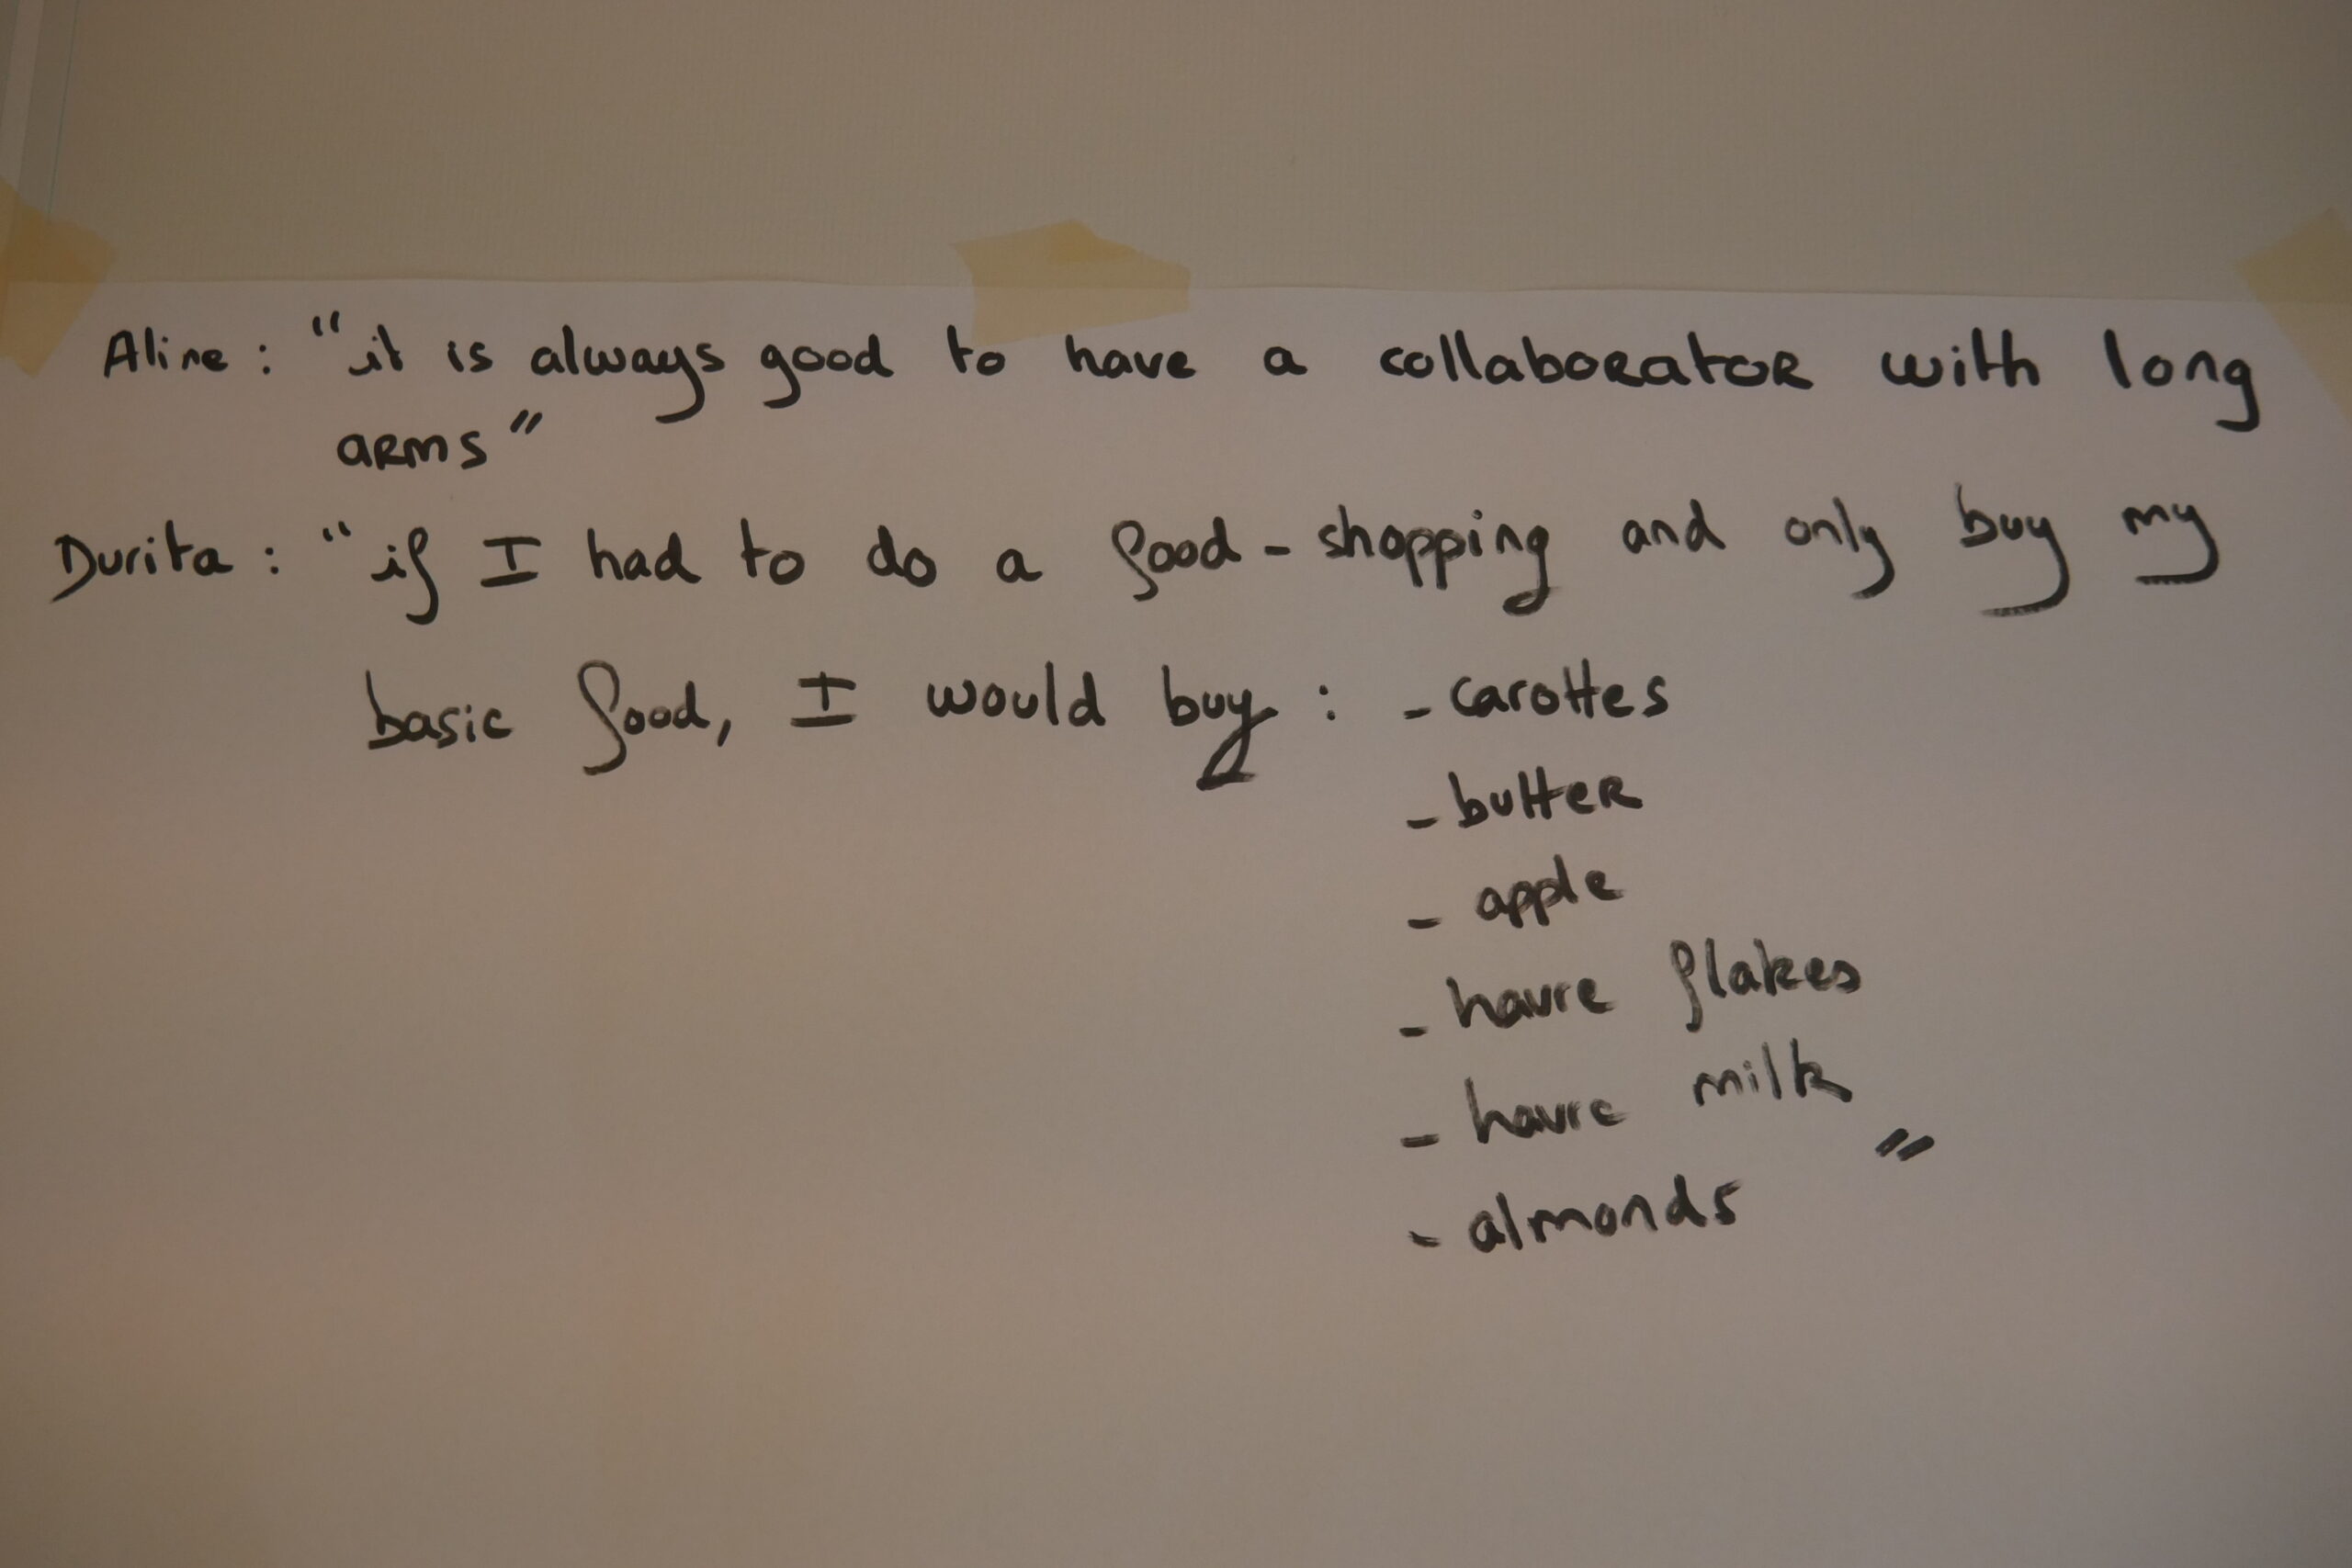 Aline : "it is always good to have a collaborator with long
arms"
Durita : "if I had to do a food-shopping and only buy my
basic food, I would buy : - carottes
- butter
- apple
- havre flakes
- havre milk
- almonds "